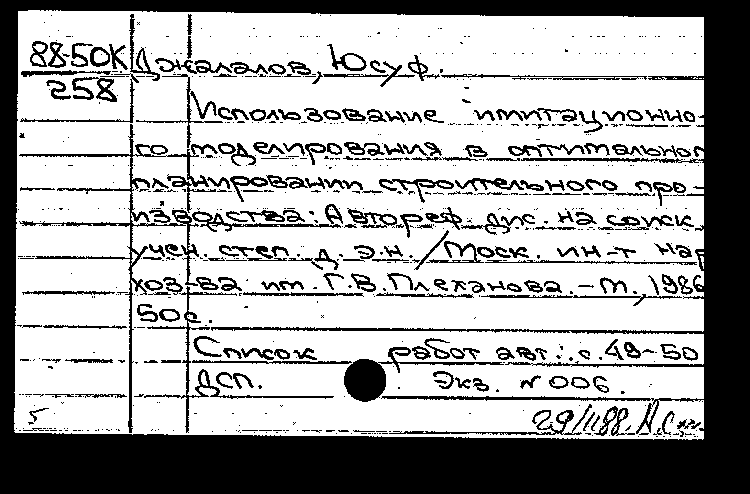 88-50К Джалалов, Юсуф.
258
Использование имитационно-
го моделирования в оптимальном
планировании строительного про-
изводства: Автореф. дис. на соиск.
учен. степ. д. э.н. / Моск. ин-т нар
хоз-ва им. Г.В. Плеханова. – М., 1986
50с.
Список работ авт.: с. 48-50
ДСП. Экз. № 006.
5 29/II 88.